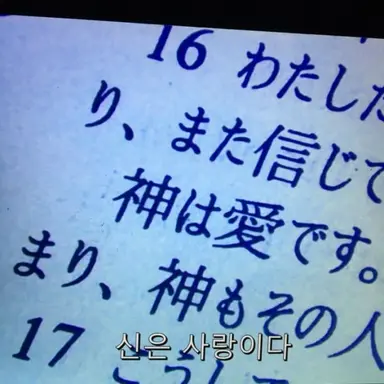 16 わたした
り、また信じて
神は愛です。
まり、神もその人
17 こうして
신은 사랑이다